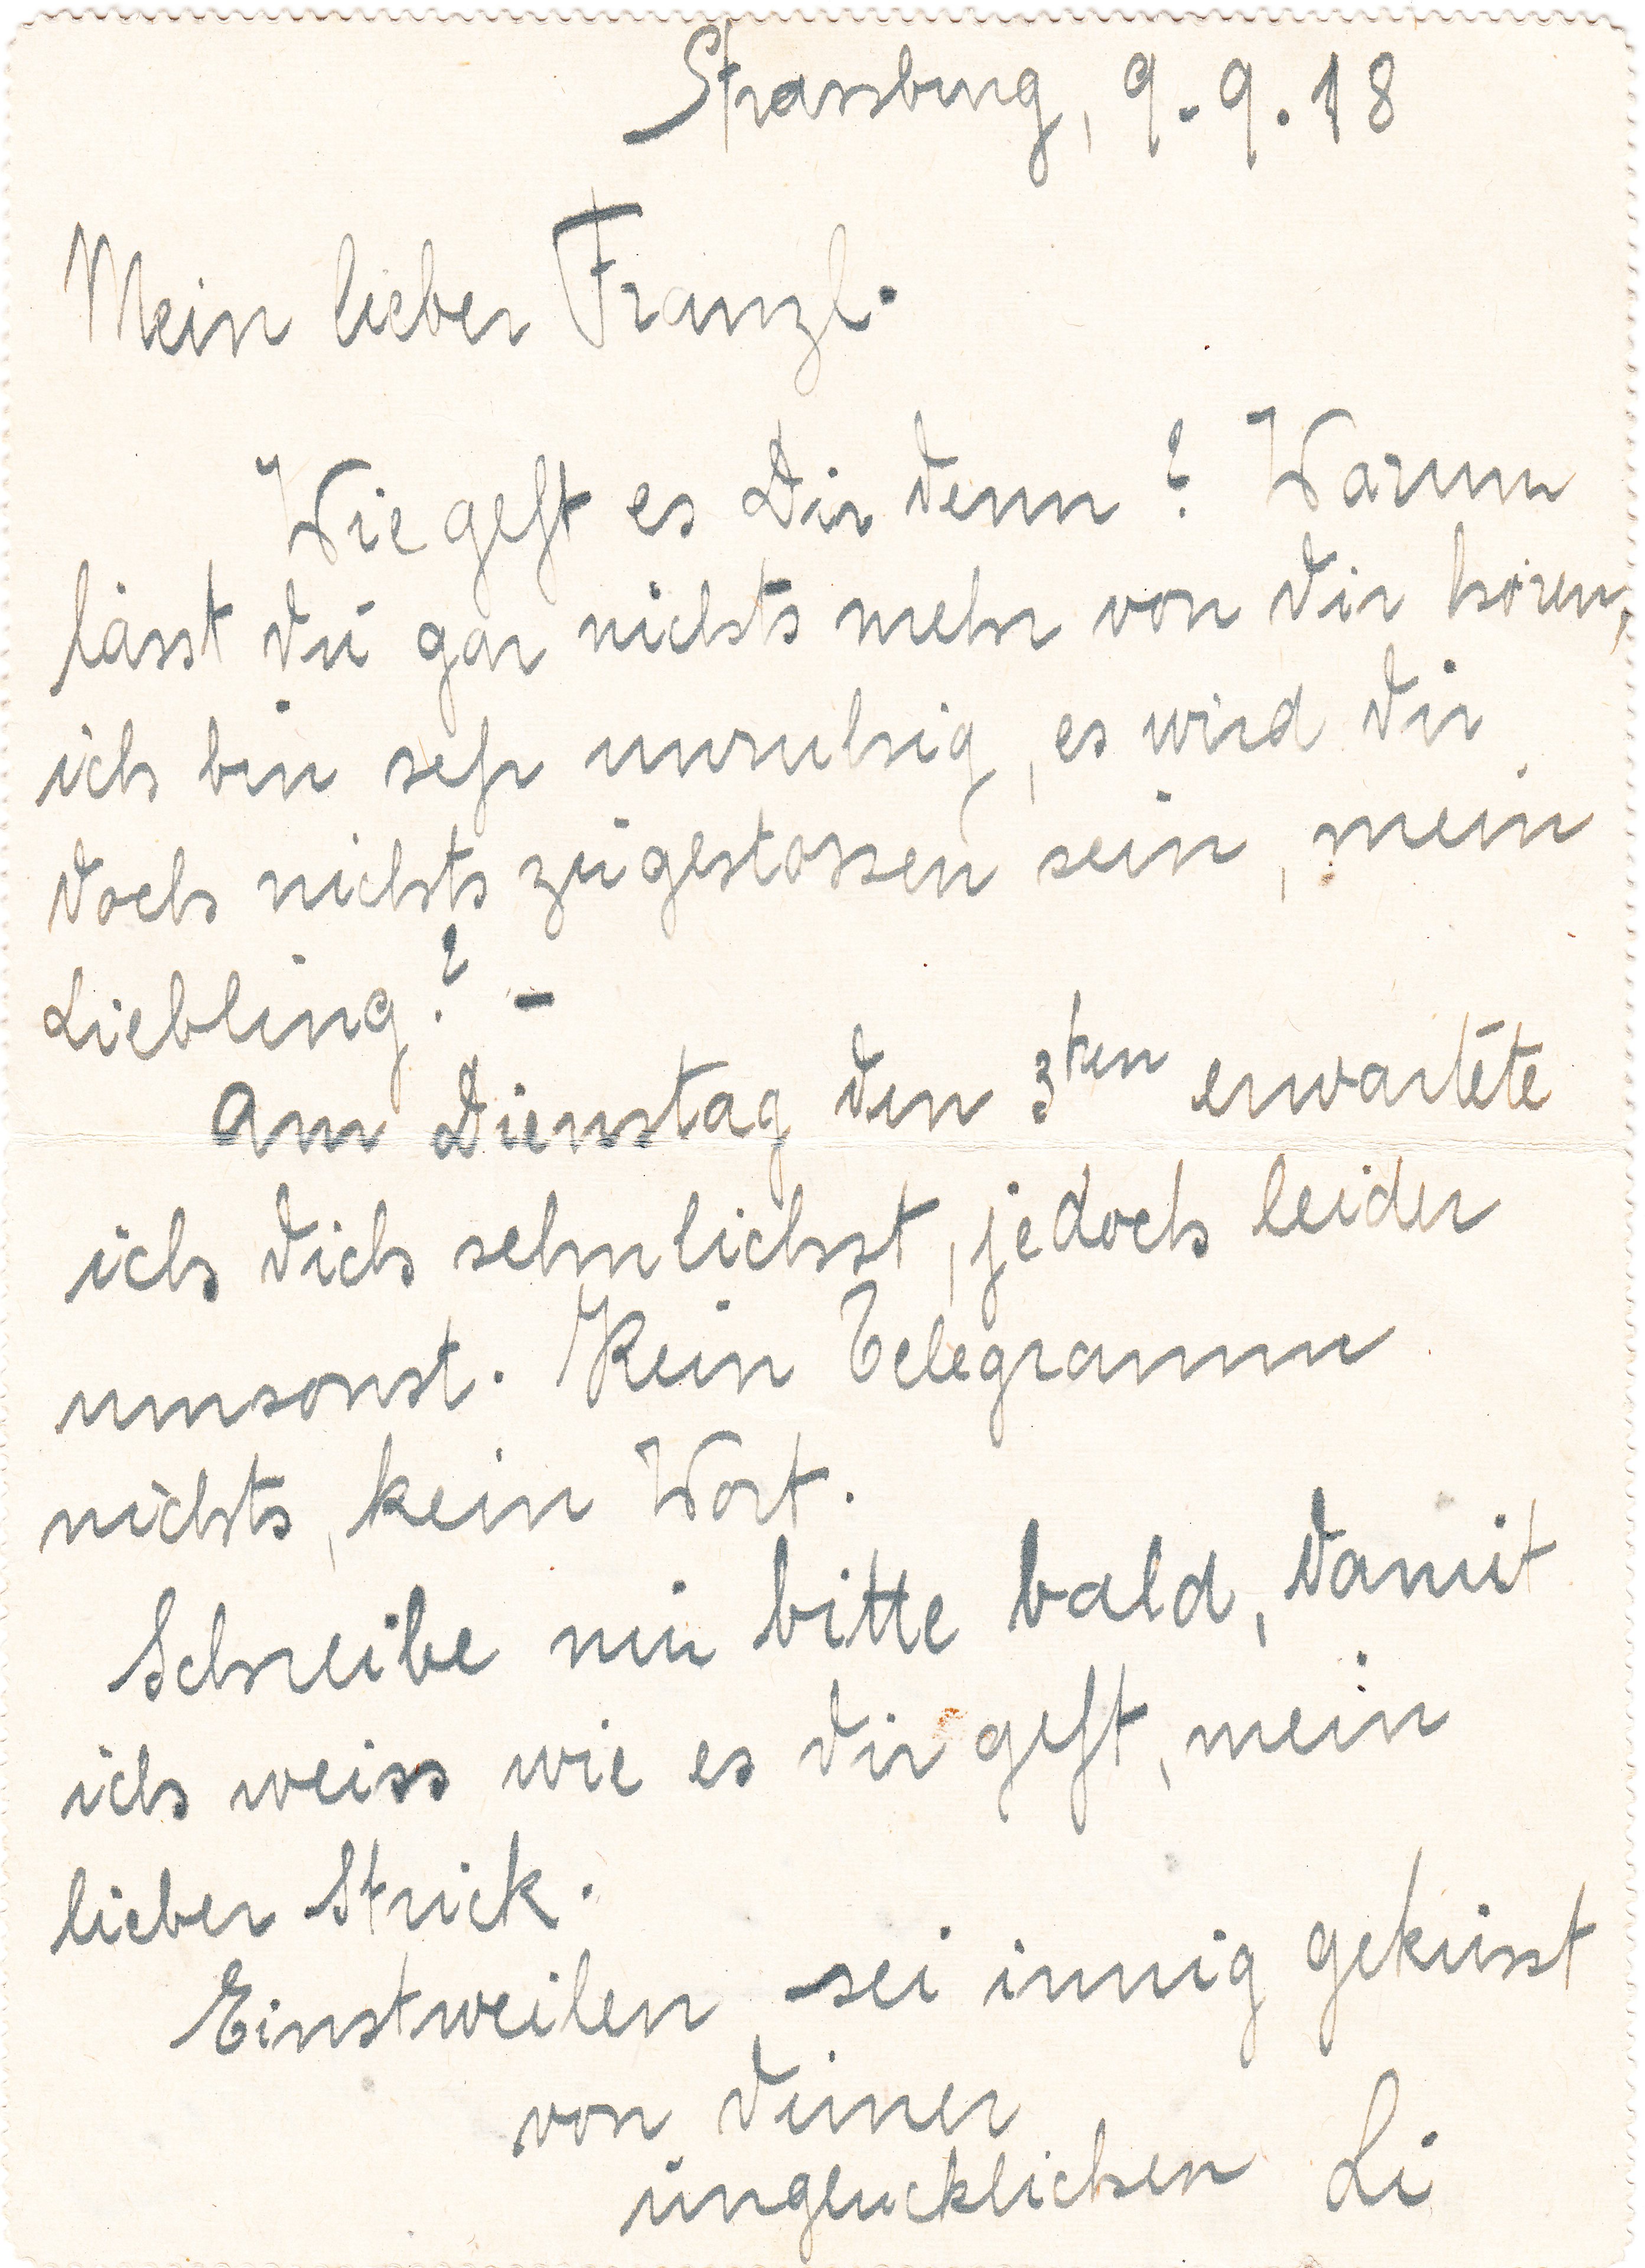 Strassburg, 9.9.18
Mein lieber Franzl.
Wie geht es Dir denn? Warum
lässt du gar nichts mehr von dir hören,
ich bin sehr unruhig, es wird dir
doch nichts zugestossen sein, mein
Liebling? -
Am Dienstag den 3ten erwartete
ich dich sehnlichst, jedoch leider
umsonst. Kein Telegramm
nichts, kein Wort.
Schreibe mir bitte bald, damit
ich weiss wie es dir geht, mein
lieber Strick.
Einstweilen sei innig geküsst
von deiner
unglucklichen Li